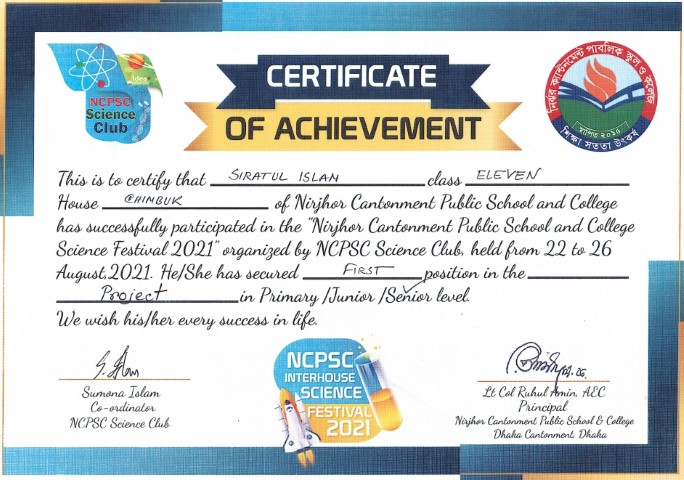 Idea
NCPSC
Science
Club
CERTIFICATE
OF ACHIEVEMENT
নির্ঝর ক্যান্টনমেন্ট পাবলিক স্কুল ও কলেজ
স্থাপিত ২০১৪
শিক্ষা সততা উৎকর্ষ
This is to certify that SIRATUL ISLAM class ELEVEN
House CHIMBUK of Nirjhor Cantonment Public School and College
has successfully participated in the "Nirjhor Cantonment Public School and College
Science Festival 2021" organized by NCPSC Science Club, held from 22 to 26
August,2021. He/She has secured FIRST position in the
Project in Primary /Junior /Senior level.
We wish his/her every success in life.
Sumona Islam
Co-ordinator
NCPSC Science Club
NCPSC
INTERHOUSE
SCIENCE
FESTIVAL
2021
Lt Col Ruhul Amin, AEC
Principal
Nirjhor Cantonment Public School & College
Dhaka Cantonment, Dhaka